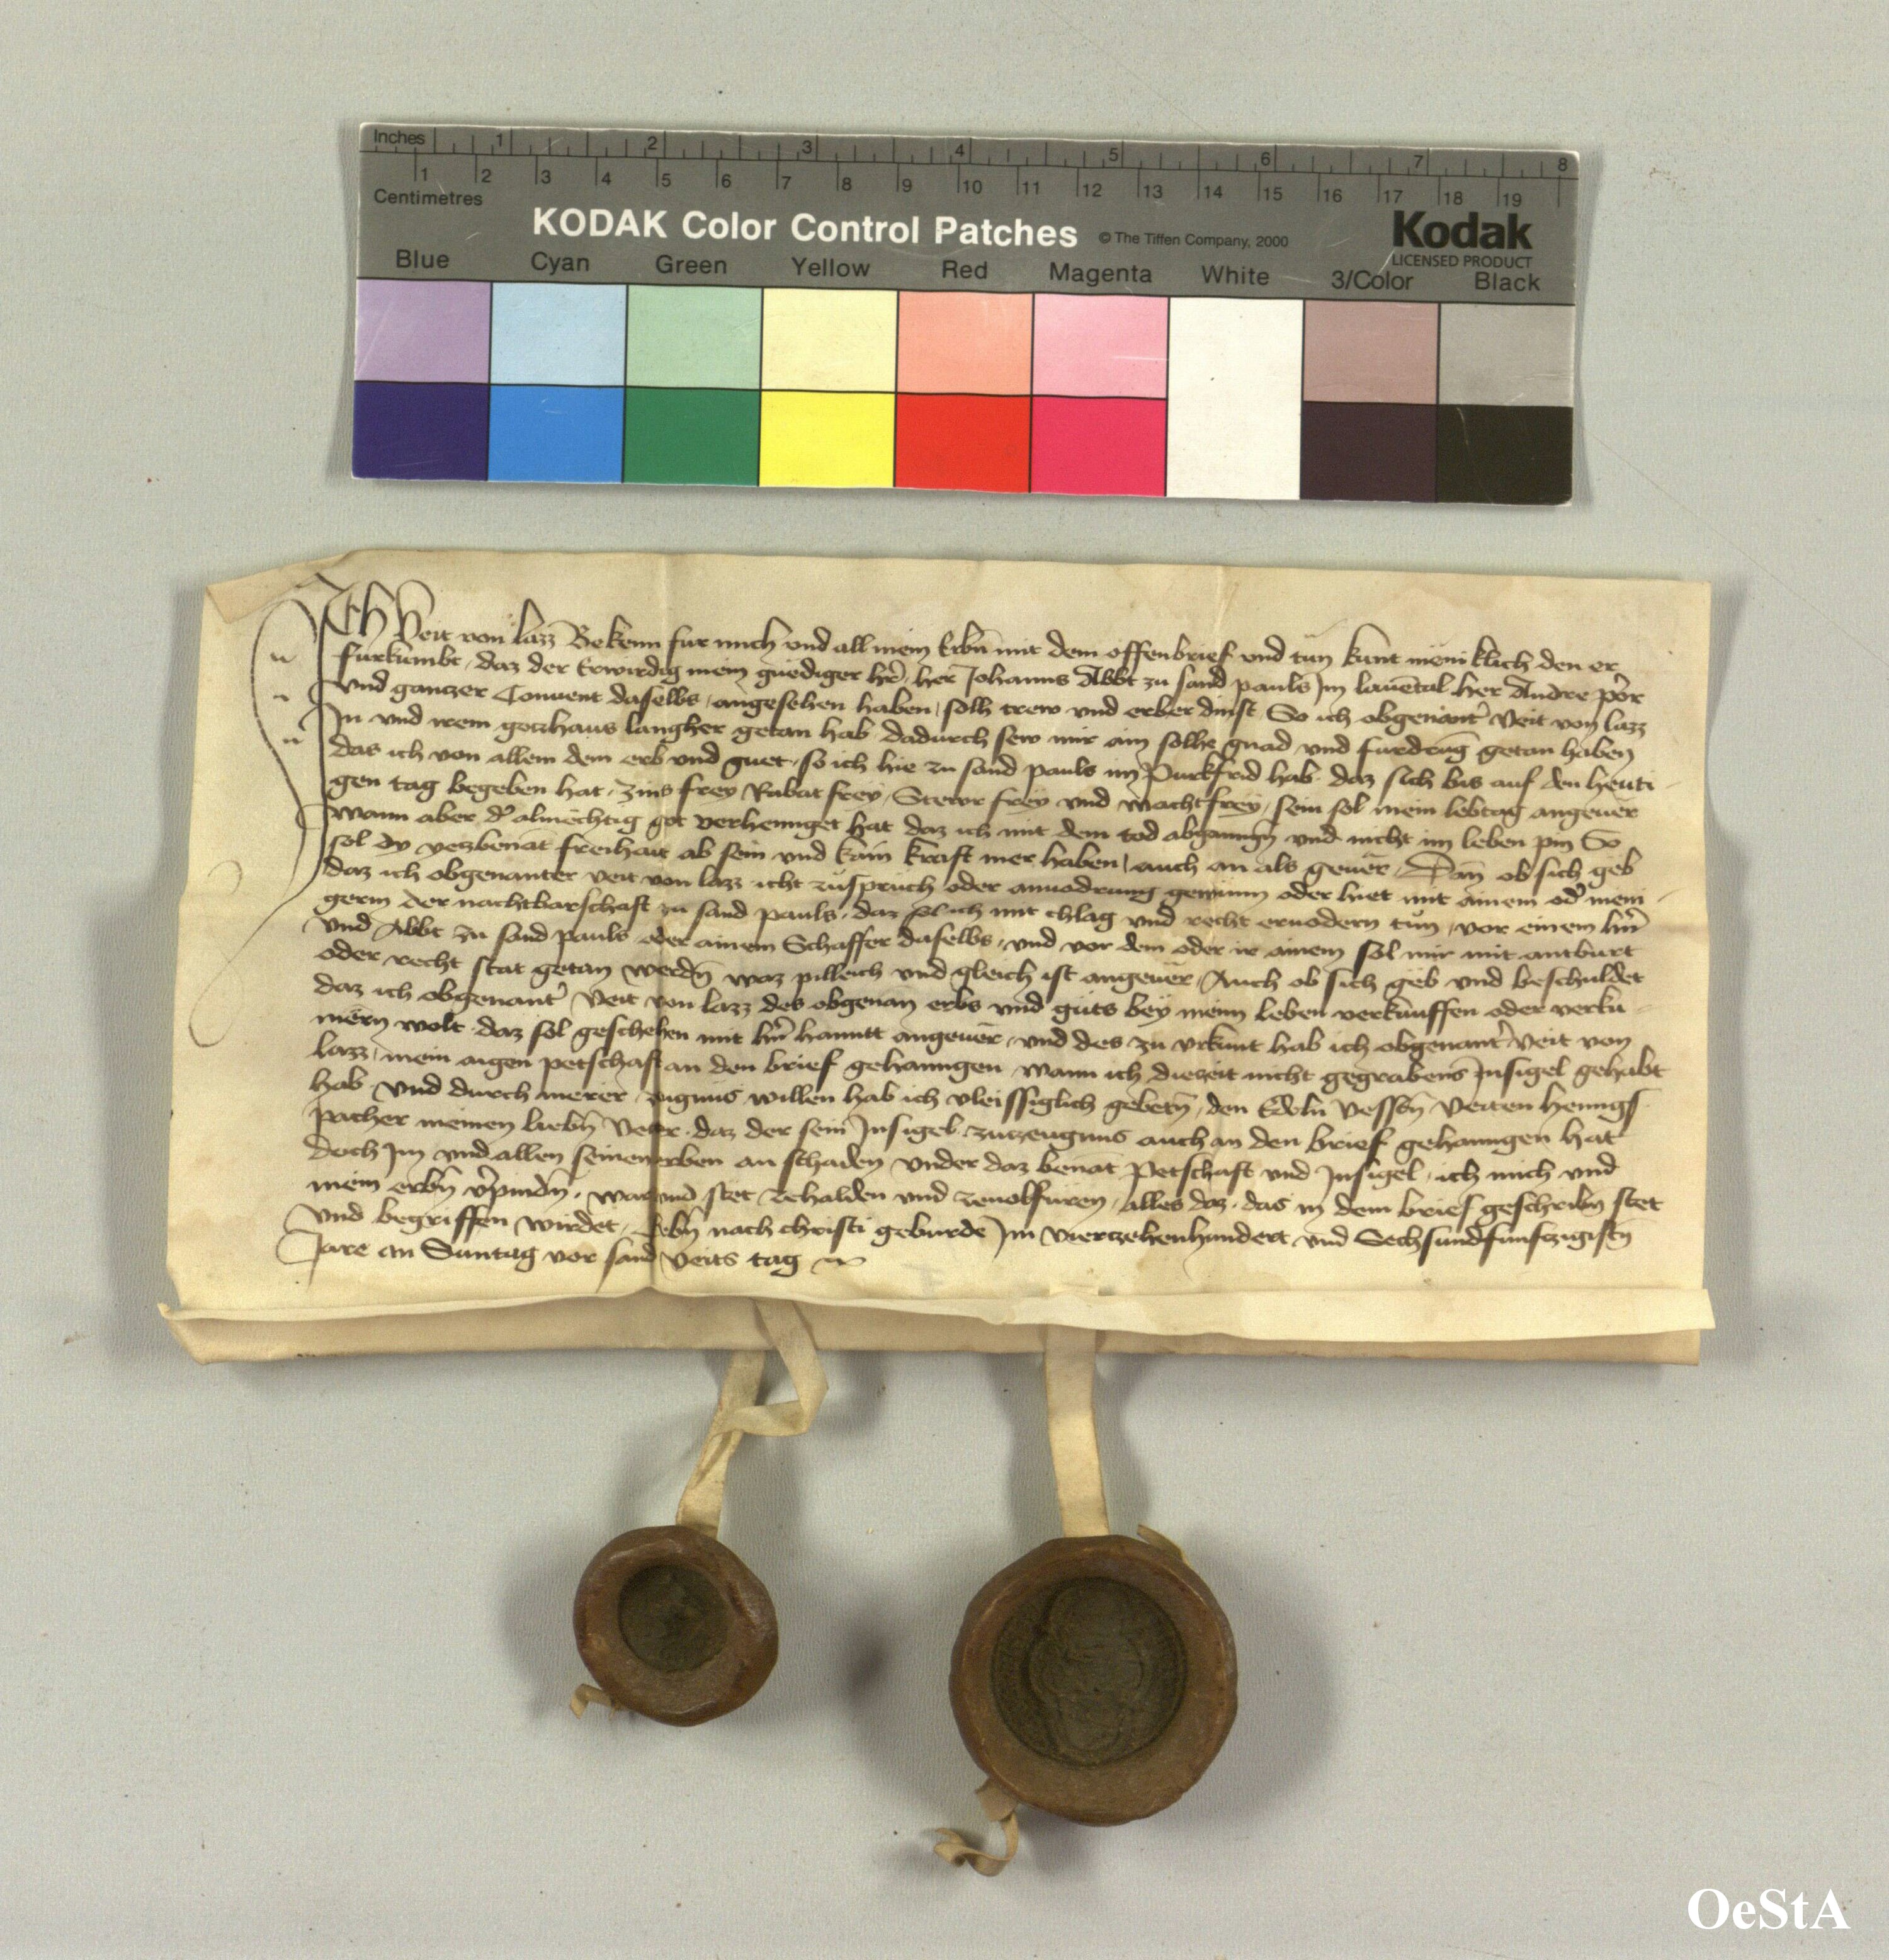 Inches 1 2 3 4 5 6 7 8
1 2 3 4 5 6 7 8 9 10 11 12 13 14 15 16 17 18 19
Centimetres
KODAK Color Control Patches © The Tiffen Company, 2000 Kodak
LICENSED PRODUCT
Blue Cyan Green Yellow Red Magenta White 3/Color Black
Ich Veit von lazz Bekenn fur mich vnd all mein Erbn mit dem offenbrief vnd tun kunt meniklich den er
furkumbt, daz der Erwirdig mein gnediger hr, her Johanns Abbt zu sand pauls Im lauental her Andre pror
vnd ganczer Conuent daselbs, angesehen haben, solh trew vnd erber dinst, So ich obgenant Veit von lazz
In vnd irem gotzhaus langher getan hab dadurch sew mir ain solhe gnad vnd furdrug getan haben
das ich von allem dem erb vnd guet, so ich hie zu sand pauls im Purkfrid hab, daz sich bis auf den heuti
gen tag begeben hat, Zins frey Robat frey, Stewr frey vnd wachtfrey, sein sol mein lebtag angeuer
wann aber der almechtig got verhennget hat daz ich mit dem tod abganngn vnd nicht im leben pin So
sol dy yezbenat freihait ab sein vnd kain kraft mer haben, auch an als geuer, Dan ob sich geb
daz ich obgenanter veit von lazz icht zuspruch oder anuodrung gewunn oder hiet mit ainem od meni
germ der nachtbarschaft zu sand pauls, daz sol ich mit chlag vnd recht eruodern tun, vor einem hrn
vnd Abbt zu sand pauls oder ainem Schaffer daselbs, vnd vor dem oder ir ainem sol mir mit antburt
oder recht stat getan werdn waz pilleich vnd gleich ist angeuer, Auch ob sich geb vnd beschuldet
daz ich obgenant Veit von lazz des obgenan erbs vnd guts bey meim leben verkauffen oder verku
mern wolt, daz sol geschehen mit hrn hanntt angeuer, vnd des zu vrkunt hab ich obgenant Veit von
lazz, mein aigen petschaft an den brief gehanngen wann ich diezeit nicht gegrabens Insigel gehabt
hab vnd durch merer zugnus willen hab ich vleissiglich gebetn, den Edeln vesstn Veiten henngs
pacher meinen liebn Veter, daz der sein Insigel zuzeugnus auch an den brief gehanngen hat
doch Im vnd allen seinen erben an schaden vnder daz benat Petschaft vnd Insigel, ich mich vnd
mein erbn vpindn, war vnd stet zehalden vnd zeuolfuren, alles daz, das in dem brief geschribn stet
vnd begriffen wirdet, Gebn nach christi geburde Im vierzehenhundert vnd Sechsundfunfzigistn
Jare an Suntag vor sand Veits tag
OeStA